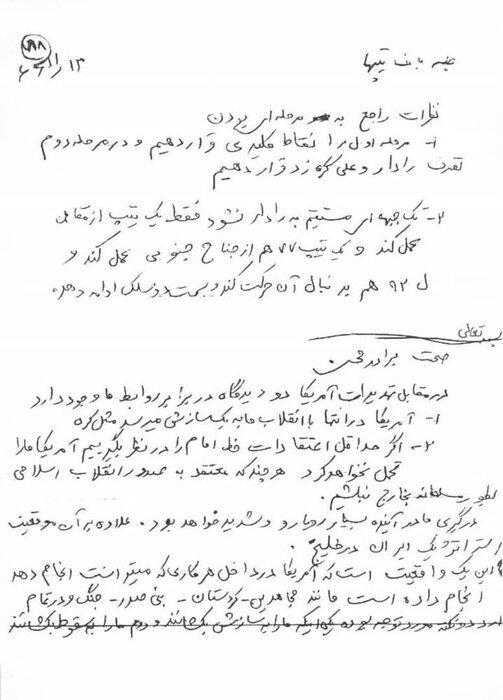 ۹۸
۱۳
جلسه با ف تیپها
نظرات راجع به مرحله‌ای بودن
۱- مرحله اول را نقاط کلیدی قرار دهیم و در مرحله دوم
تصرف رادار و علی گره زد قرار دهیم
۲- تک جبهه‌ای مستقیم به رادار نشود فقط یک تیپ از مقابل
عمل کند و تیپ ۷۷ هم از جناح جنوبی عمل کند و
ل ۹۲ هم به دنبال آن حرکت کند و بسمت دوسلک ادامه دهد
بسمه تعالی
صحبت برادر محسن
در مقابل تهدیدات آمریکا دو دیدگاه در برابر روابط ما وجود دارد
۱- آمریکا در انتها با انقلاب ما به یک سازشی میرسد مثل کره
۲- اگر حداقل اعتقادات خط امام را در نظر بگیریم آمریکا ما را
تحمل نخواهد کرد هرچند که معتقد به صدور انقلاب اسلامی
بطور مسلحانه بخارج نباشیم.
درگیری ما در آینده بسیار رویارو و شدید خواهد بود. علاوه بر آن موقعیت
استراتژیک ایران در خلیج.
این یک واقعیت است که آمریکا در داخل هر کاری که میتوانست انجام دهد
انجام داده است مانند مجاهدین - کردستان - بنی صدر - جنگ و در تمام
مورد توجه بوده یکی اینکه ما را به سازش بکشانند و دوم ما را به سقوط بکشانند